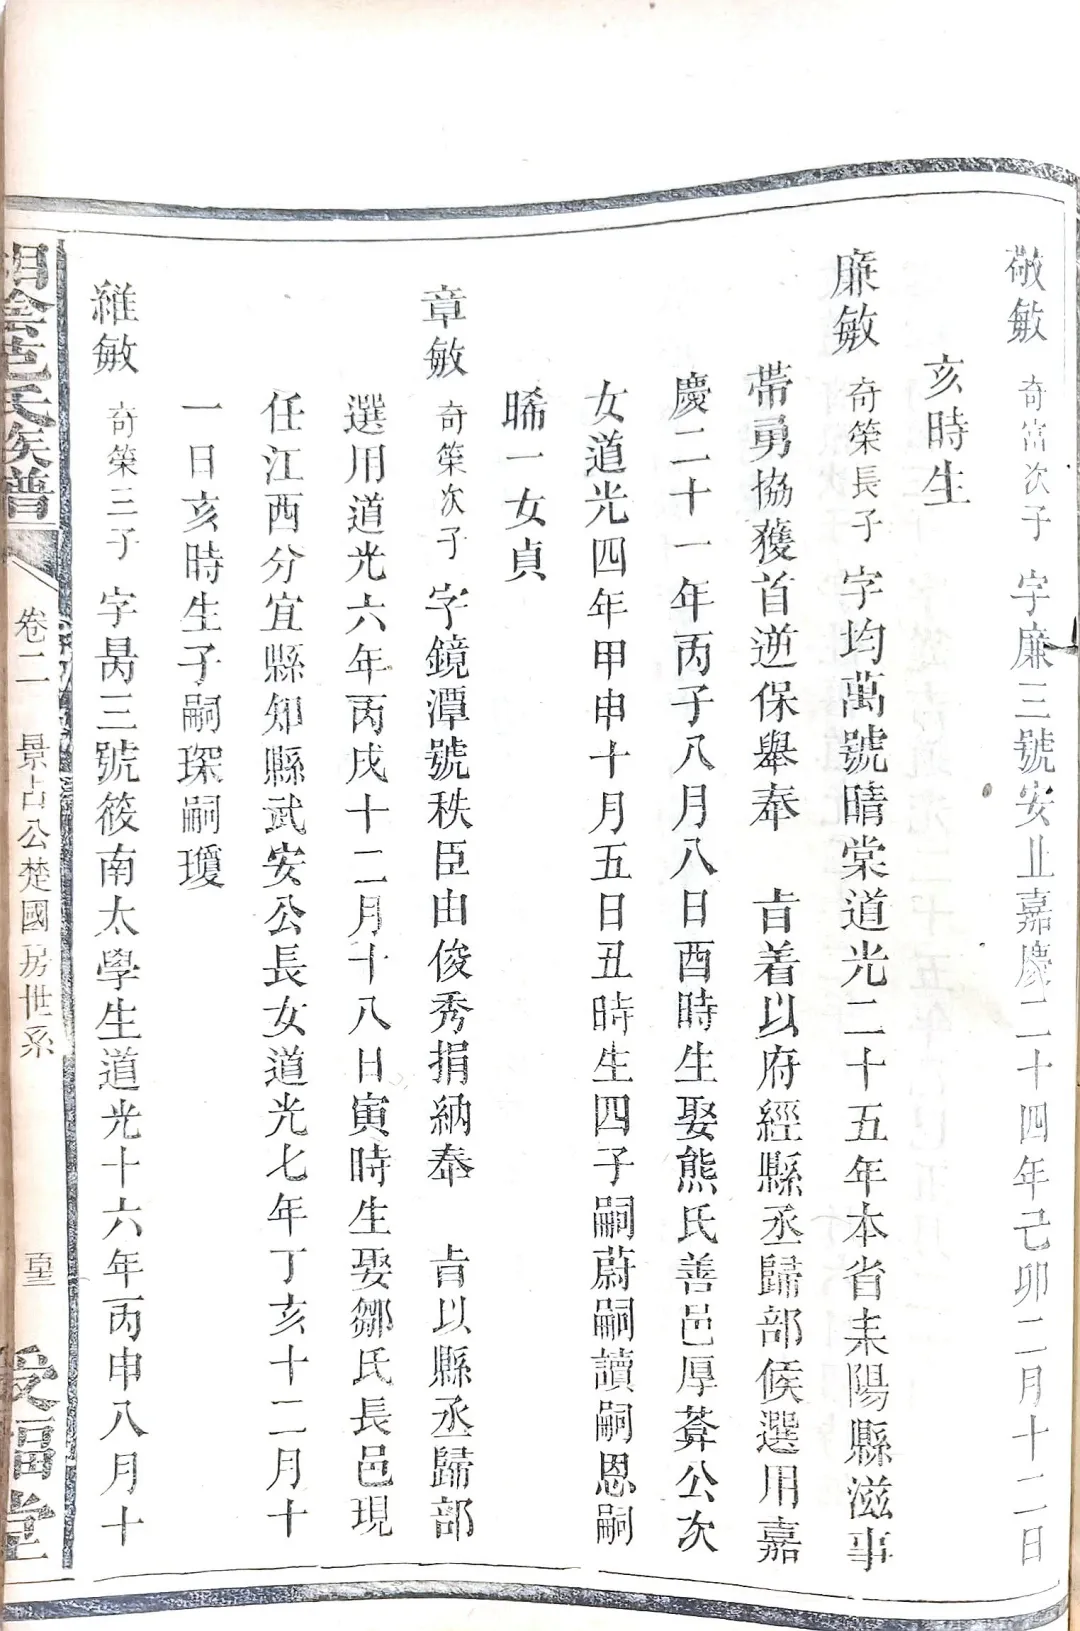 敬敏 奇富次子 字廉三號安止嘉慶二十四年己卯二月十二日
亥時生
廉敏 奇榮長子 字均萬號晴棠道光二十五年本省耒陽縣滋事
帶勇協獲首逆保舉奉 旨着以府經縣丞歸部候選用嘉
慶二十一年丙子八月八日酉時生娶熊氏善邑厚葊公次
女道光四年甲申十月五日丑時生四子嗣蔚嗣讀嗣恩嗣
晞一女貞
章敏 奇榮次子 字鏡潭號秩臣由俊秀捐納奉 旨以縣丞歸部
選用道光六年丙戌十二月十八日寅時生娶鄒氏長邑現
任江西分宜縣知縣武安公長女道光七年丁亥十二月十
一日亥時生子嗣琛嗣瓊
維敏 奇榮三子 字昺三號筱南太學生道光十六年丙申八月十
陰范氏族譜
卷二 景占公楚國房世系
受福堂